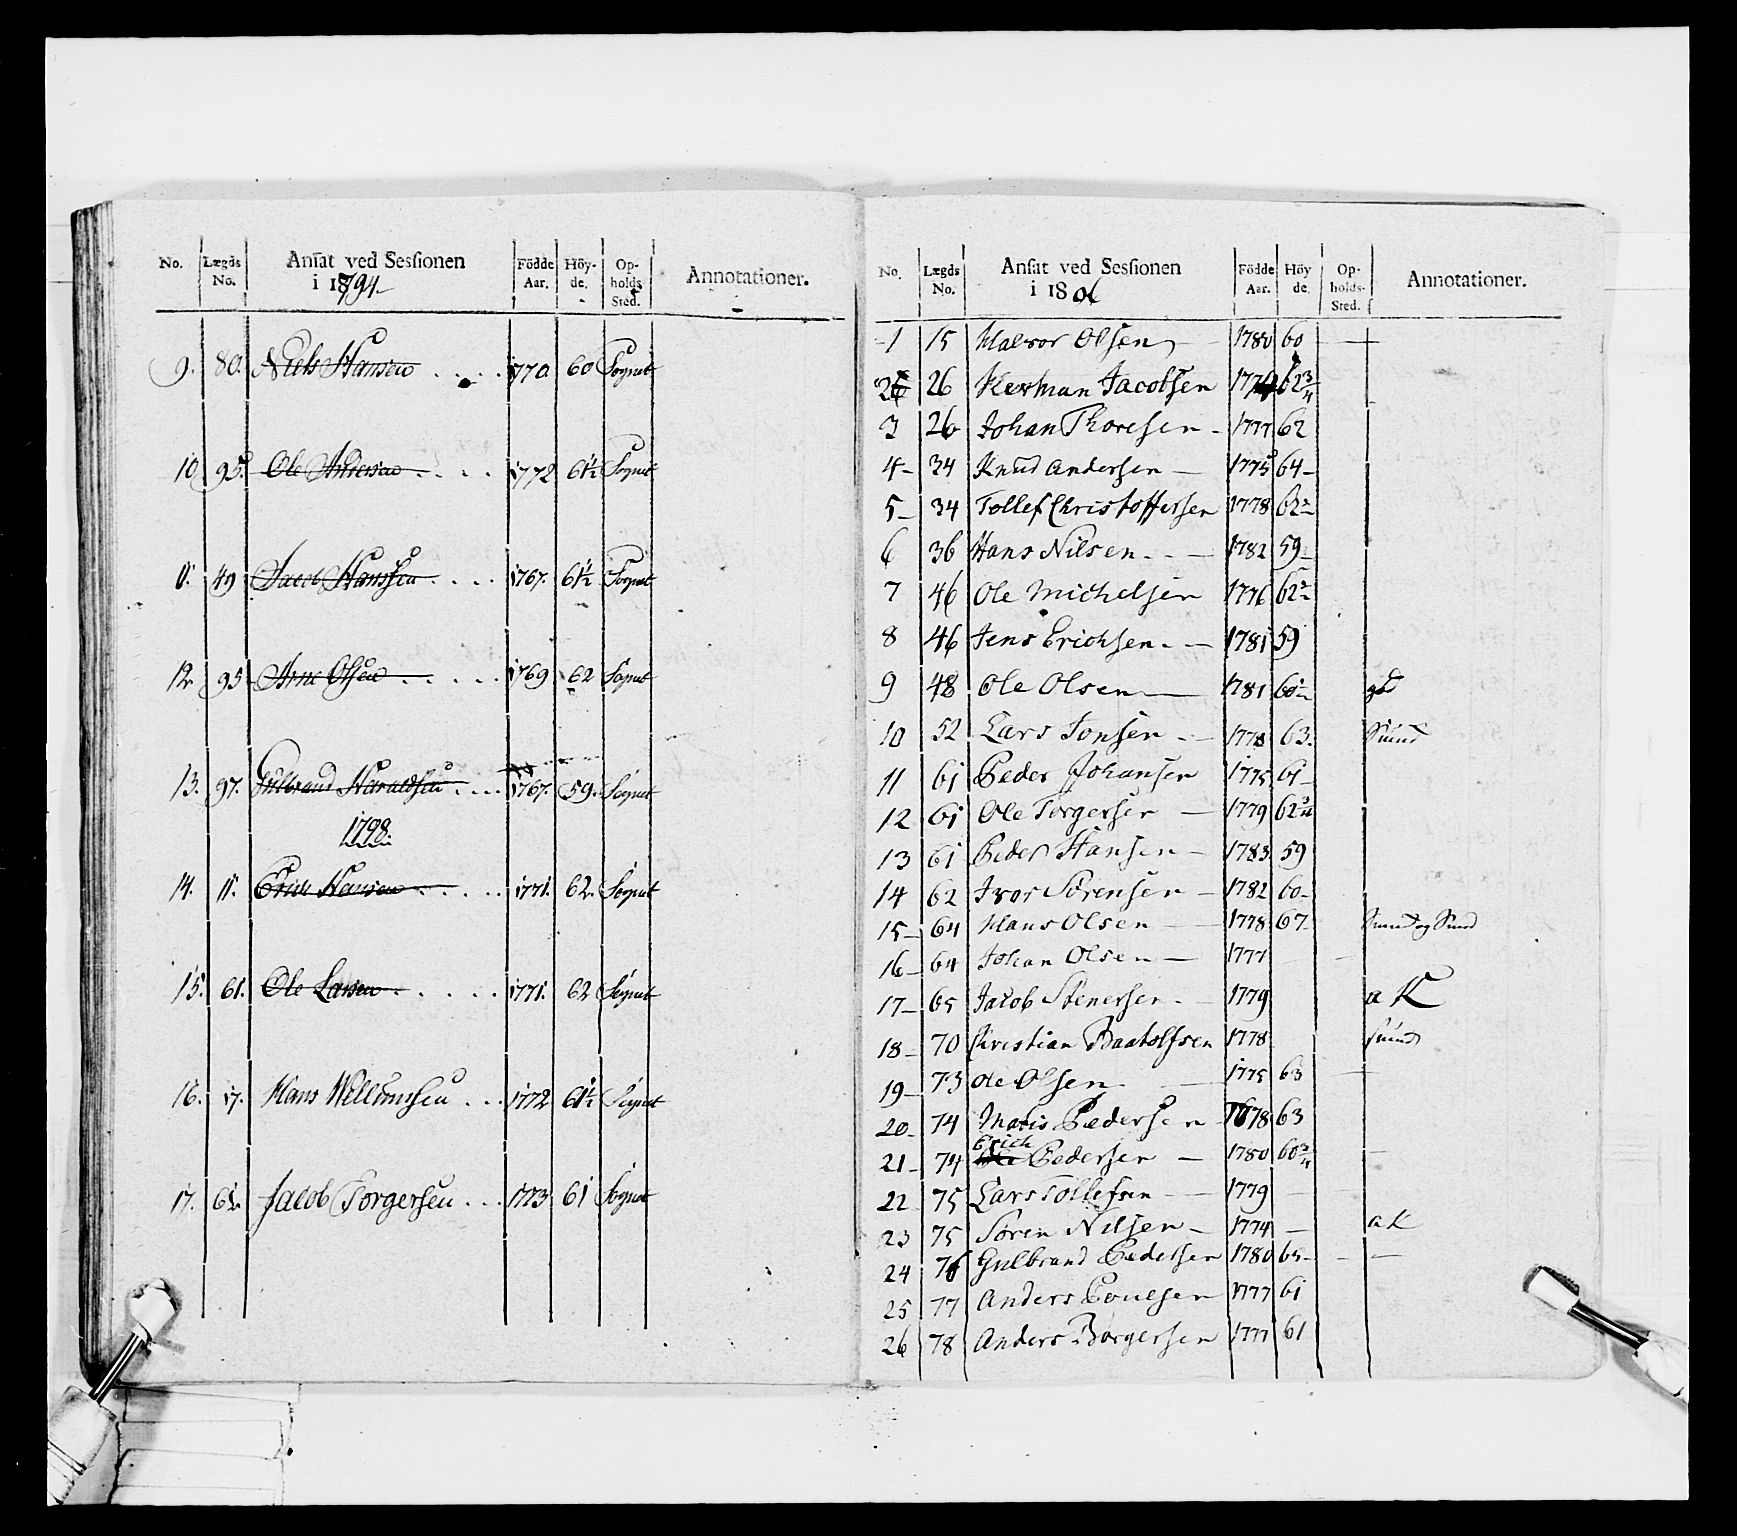 No. Lægds No. Ansat ved Sessionen i 1794 Födde Aar. Höyde. Opholds Sted. Annotationer.
9. 80. Niels Hansen . . . . 1770. 60 Sognet
10 95. Ole Andersen . . . 1772 61½ Sognet
11. 49 Jacob Hanssen . . . 1767. 61½ Sognet
12. 95 Arne Olsen . . . . 1769 62 Sognet
13. 97. Gulbrand Haraldsen . . . 1767. 59. Sognet
1798.
14. 11. Erich Hansen . . . . 1771. 62. Sognet
15. 61. Ole Larsen . . . . 1771. 62 Sognet
16. 17. Hans Willumsen . . . 1772 61½ Sognet
17. 62 Jacob Torgersen . . . 1773 61 Sognet
No. Lægds No. Ansat ved Sessionen i 1806 Födde Aar. Höyde Opholds-Sted. Annotationer.
1 15 Halvor Olsen 1780 60 —
2 26 Herman Jacobsen 62¾
3 26 Johan Thoresen - 1777 62
4- 34 Knud Andersen — 1775 64-
5- 34 Tollef Christoffersen 1778 62½
6 36 Hans Nilsen - - — 1782 59-
7 46 Ole Michelsen 1776 62½
8 46 Jens Erichsen - — 1781 59
9 48 Ole Olsen — 1781 60½ god
10 52 Lars Jonsen - — 1778 63. Siund
11 61 Peder Johansen 1775 61-
12 61 Ole Torgersen — 1779 62¾
13 61 Peder Hansen — 1783 59
14 62 Iver Sörensen — 1782 60-
15- 64 Hans Olsen — 1778 67
16- 64 Johan Olsen — 1777
17- 65 Jacob Stenersen - 1779 a K
18- 70 Christian Baatolfsen 1778 siund
19- 73 Ole Olsen — 1775 63 —
20- 74 Matis Pedersen 1778 63
21- 74 Erich Pedersen — 1780 60¾ —
22 75 Lars Tollefsen — 1779 —
23 75 Sören Nilsen — 1774 — a K
24 76 Gulbrand Pedersen 1780 65- — —
25 77 Anders Poulsen 1777 61
26 78 Anders Borgersen 1777 61